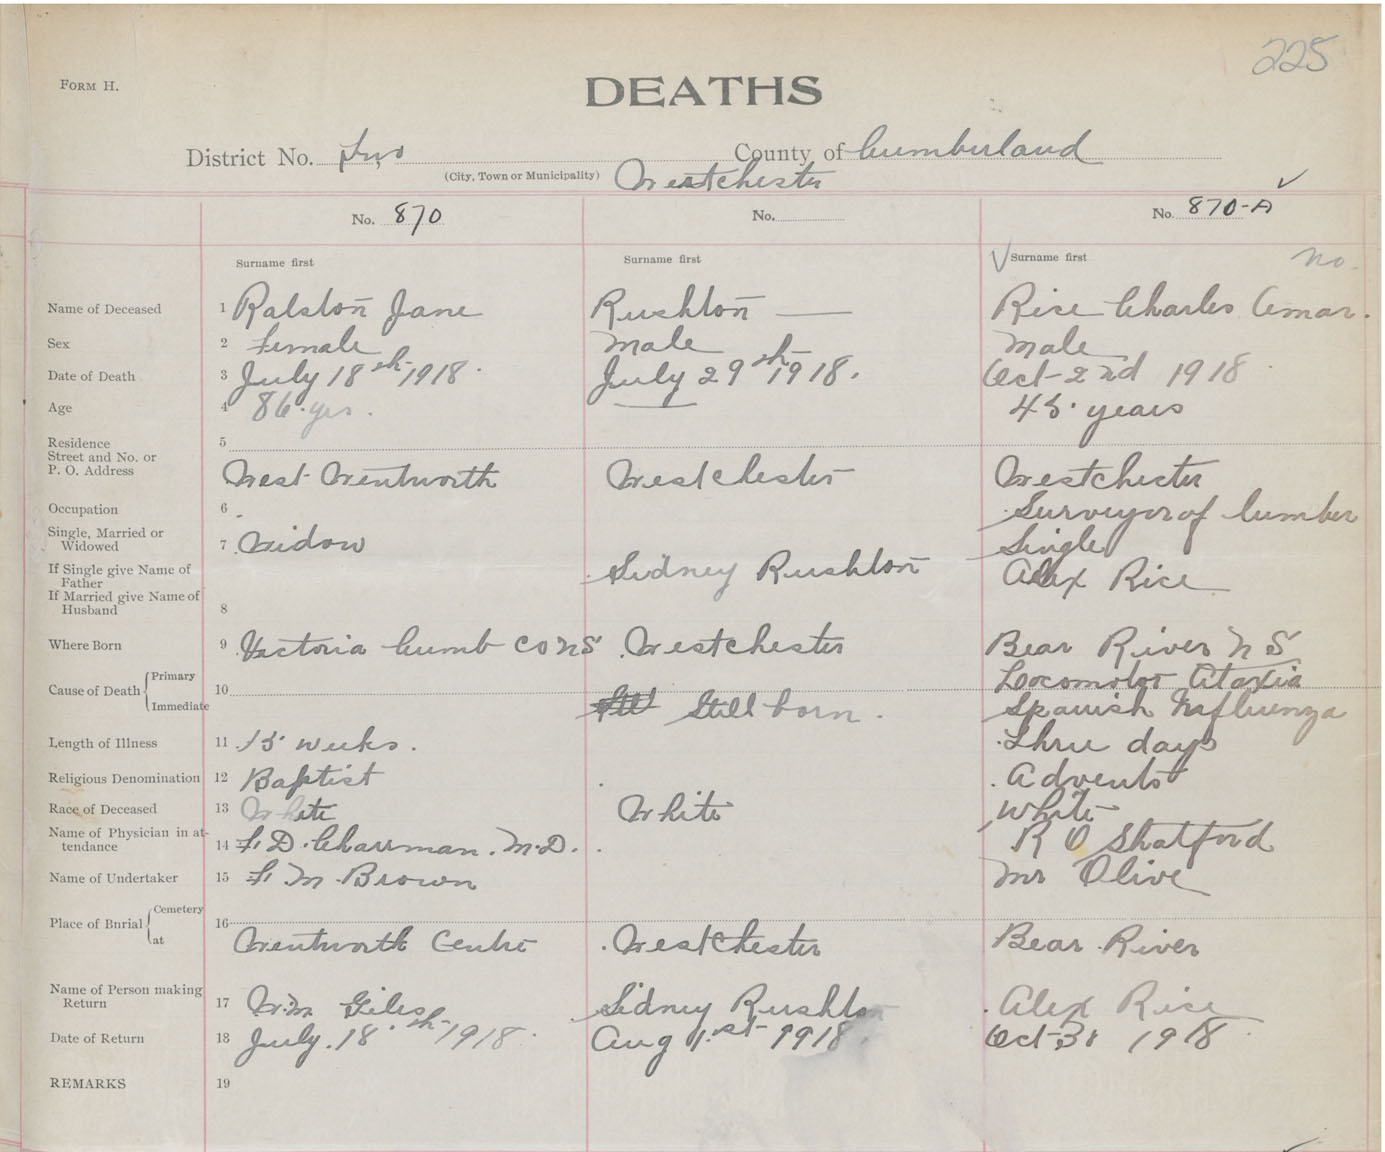 225
FORM H.
DEATHS
District No. two County of Cumberland
(City, Town or Municipality) Westchester
No. 870 No. No. 870-A
Surname first Surname first Surname first no.
Name of Deceased 1 Ralston Jane Rushton — Rice Charles
Sex 2 Female Male Male
Date of Death 3 July 18th 1918. July 29th 1918. Oct 2nd 1918
Age 4 86 yrs. — 45 years
Residence 5
Street and No. or
P. O. Address West Wentworth Westchester Westchester
Occupation 6 Surveyor of lumber
Single, Married or
Widowed 7 Widow Single
If Single give Name of
Father Sidney Rushton Alex Rice
If Married give Name of
Husband 8
Where Born 9 Victoria Cumb Co NS Westchester Bear River N S
Cause of Death Primary 10 Locomotor Ataxia
Immediate Still born. Spanish Influenza
Length of Illness 11 15 weeks. Three days
Religious Denomination 12 Baptist Advents
Race of Deceased 13 White White White
Name of Physician in at-
tendance 14 F. D. Charman. M.D. R O Shatford
Name of Undertaker 15 F M Brown Mr Olive
Place of Burial Cemetery 16
at Wentworth Centre Westchester Bear River
Name of Person making
Return 17 Wm Giles Sidney Rushton Alex Rice
Date of Return 18 July. 18th 1918. Aug 1st 1918. Oct 1918
REMARKS 19